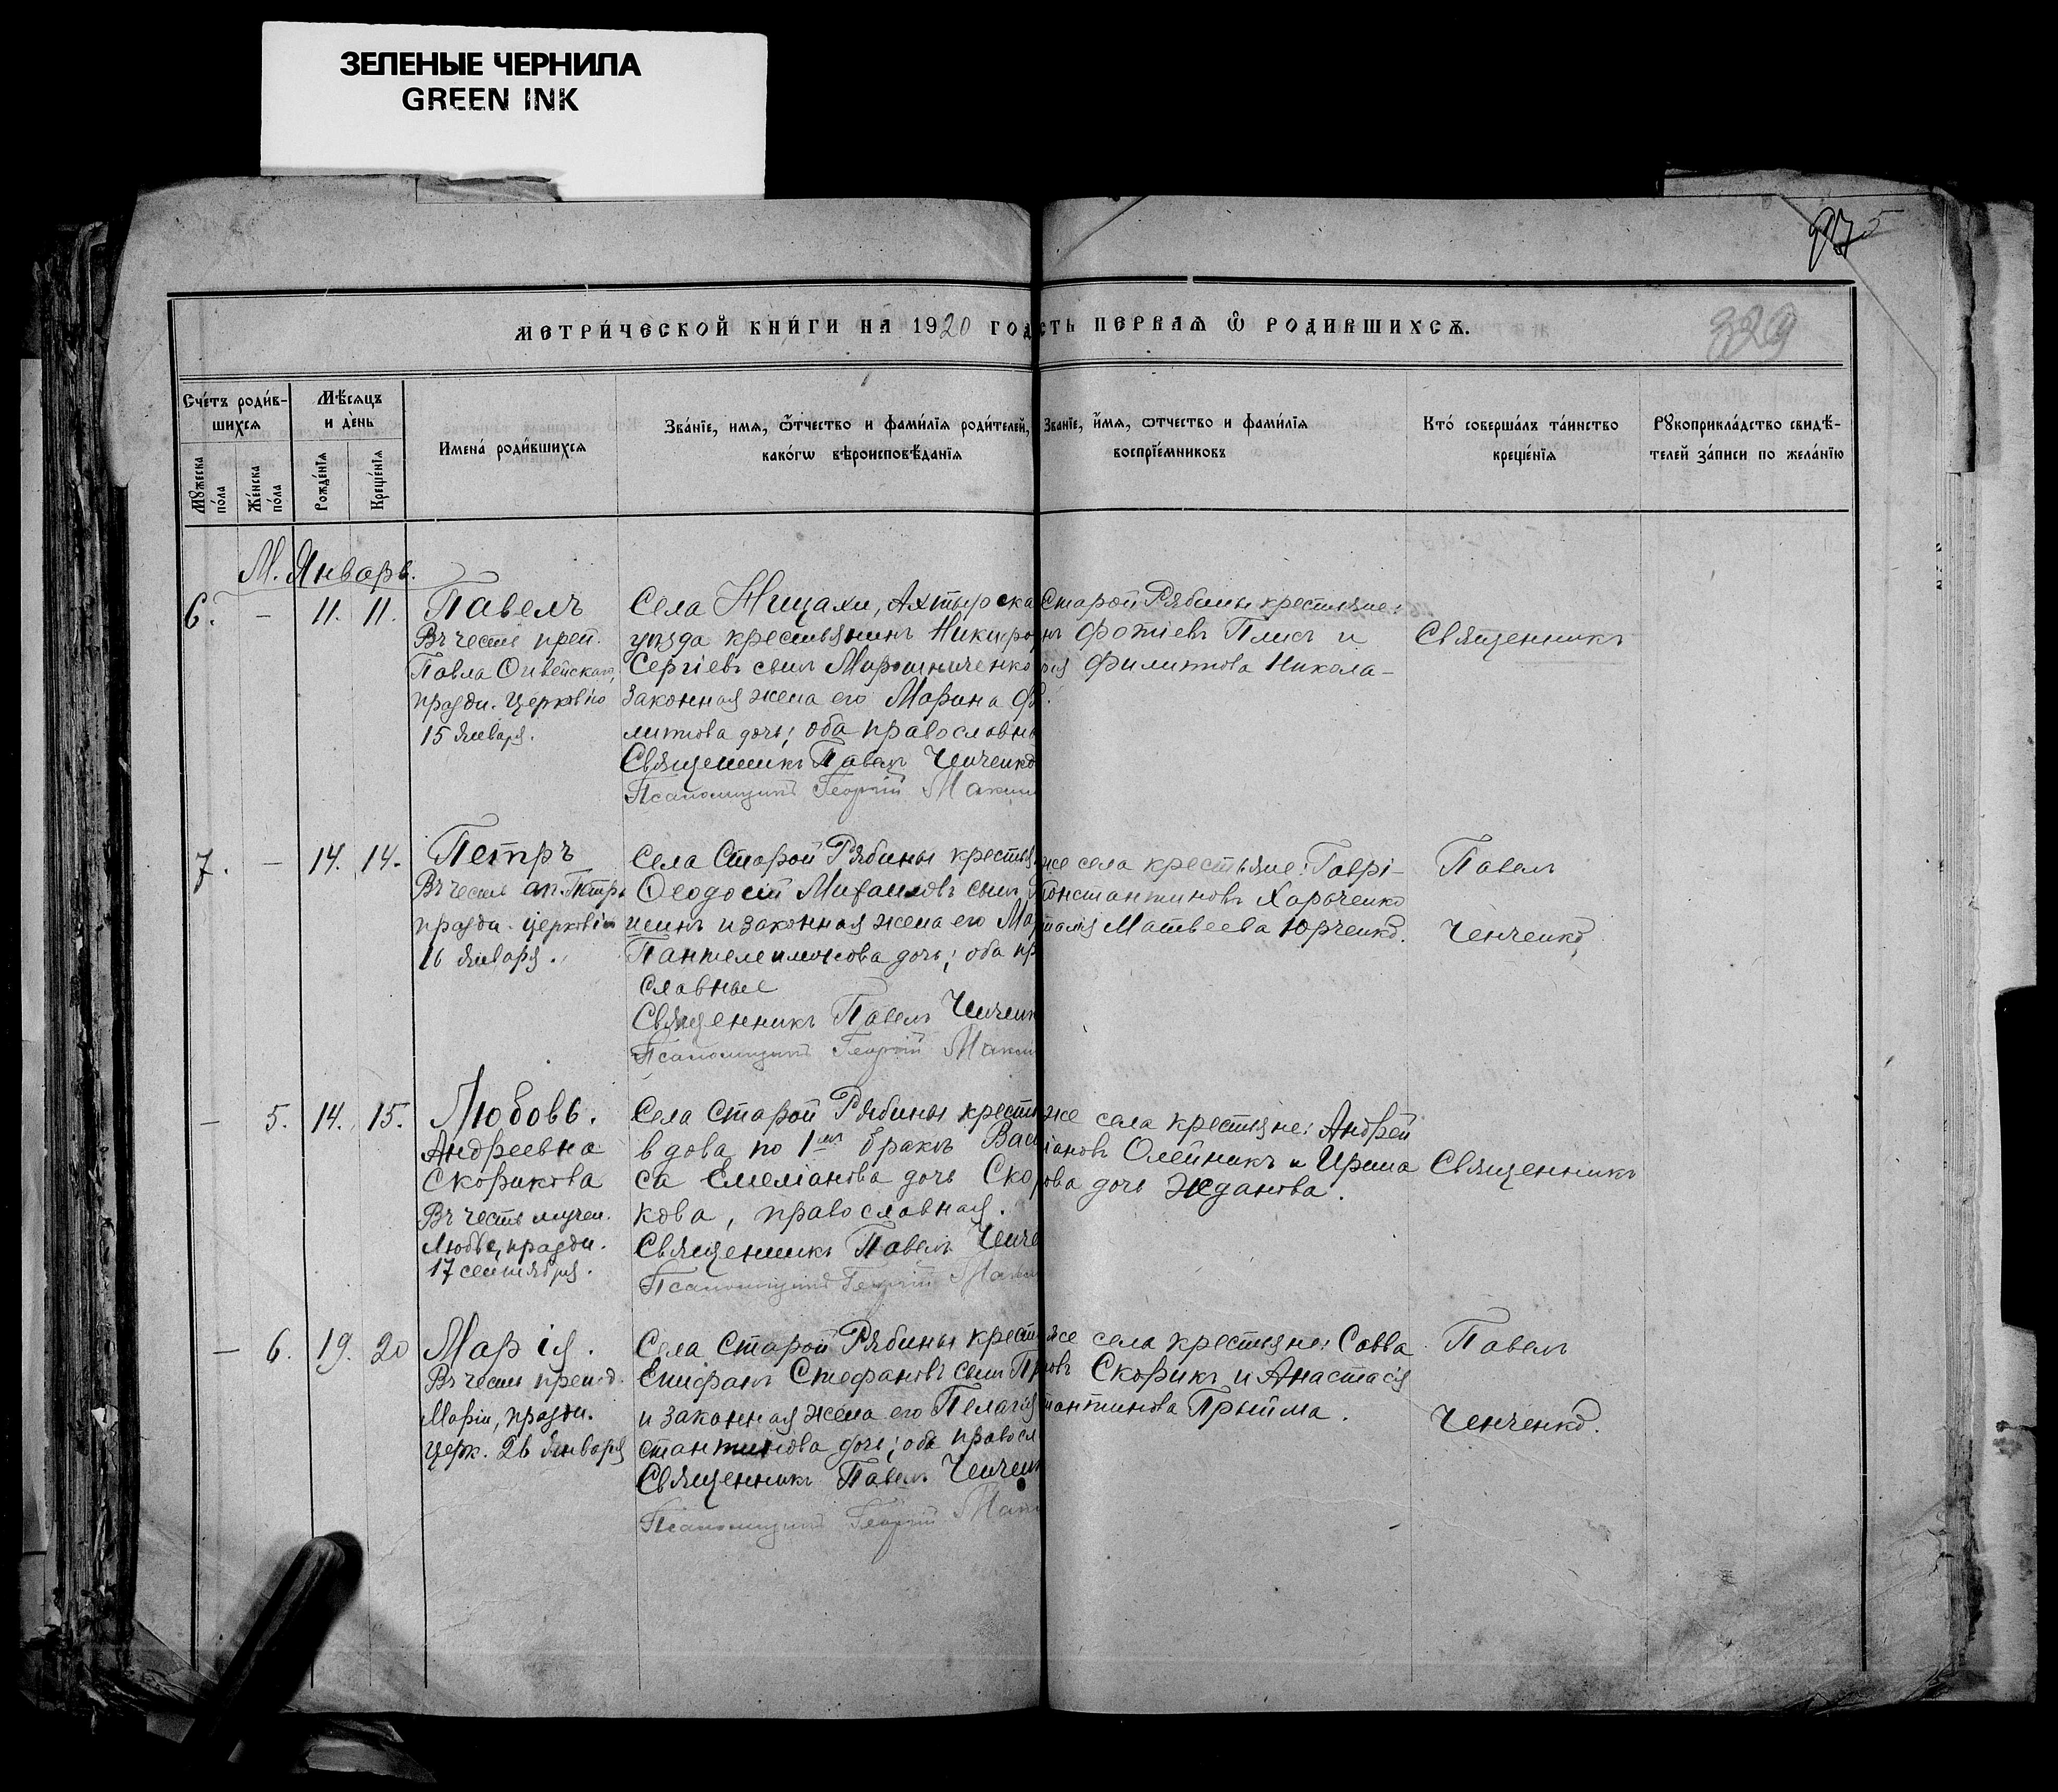 ЗЕЛЕНЫЕ ЧЕРНИЛА
GREEN INK
329
МЕТРИ́ЧЕСКОЙ КНИ́ГИ НА 1920 ГОД
СТЬ ПЕРВАѦ Ѽ РОДИВШИХСѦ.
Сче́тъ роди́в-
шихсѧ
Мꙋ́жеска по́ла
Же́нска по́ла
Мѣ́сѧцъ
и де́нь
Рожде́нїѧ
Креще́нїѧ
Имена̀ роди́вшихсѧ
Зва́нїе, имѧ, ѻ҆́тчество и фами́лїѧ роди́телей,
како́гѡ вѣроисповѣ́данїѧ
Зва́нїе, и҆́мѧ, ѻтчество и фами́лїѧ
воспрїе́мниковъ
Кто́ соверша́лъ та́инство
креще́нїѧ
Рꙋкоприкла́дство свидѣ́-
телей за́писи по жела́нїю
М. Январь.
6. - 11. 11.
Павелъ
Въ честь преп.
Павла Ѳивейскаго,
праздн. церковію
15 января.
Села Ницахи, Ахтырска
уѣзда крестьянинъ Никифо
Сергіевъ сынъ Мирошниченко
законная жена его Марина Фи
липпова дочь; оба православн
Священникъ Павелъ Ченченко
Псаломщикъ Георгій Макси
Старой Рябины крестьяне:
нъ Фотіевъ Плисъ и
рія Филиппова Никола-
Священникъ
7. - 14. 14.
Петръ
Въ честь ап. Петра
праздн. церковію
16 января.
Села Старой Рябины крестья
Ѳеодосій Михаиловъ сынъ
и законная жена его Мар
Пантелеимонова дочь; оба пр
славные
Священникъ Павелъ Ченченк
Псаломщикъ Георгій Макси
же села крестьяне: Гаврі-
Константиновъ Харченко
талія Матвеева Юрченко.
Павелъ
Ченченко
- 5. 14. 15.
Любовь.
Андреевна
Скорикова
Въ честь мучен.
Любве, праздн.
17 сентября.
Села Старой Рябины крестья
вдова по 1мъ бракѣ Васи
са Емеліанова дочь Скор
кова, православная.
Священникъ Павелъ Ченче
Псаломщикъ Георгій Макси
же села крестьяне: Андрей
іановъ Олейникъ и Ирина
ова дочь Жданова.
Священникъ
- 6. 19. 20
Марія.
Въ честь препод.
Маріи, праздн.
церк. 26 января
Села Старой Рябины крест
Епифанъ Стефановъ сынъ Пр
и законная жена его Пелагія
стантинова дочь; оба правосл
Священникъ Павелъ Ченченк
Псаломщикъ Георгій Макс
же села крестьяне: Савва
новъ Скорикъ и Анастасія
тантинова Прыйма.
Павелъ
Ченченко.